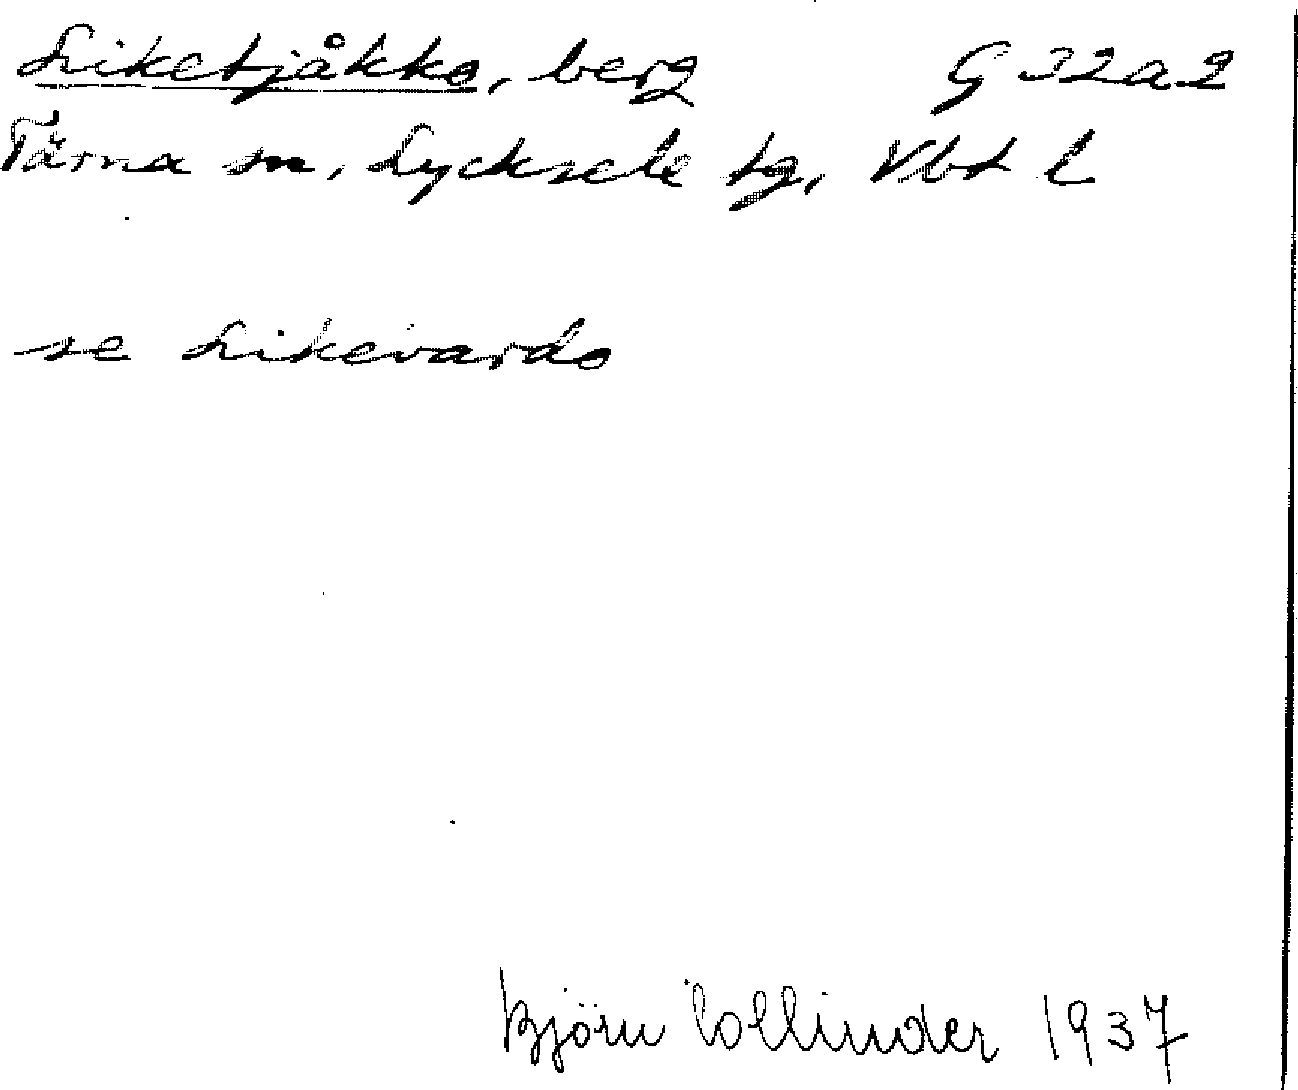 Liketjåkko, berg G 32a2
Tärna sn, Lycksele tg, Vbt l
se Likevardo
Björn Collinder 1937